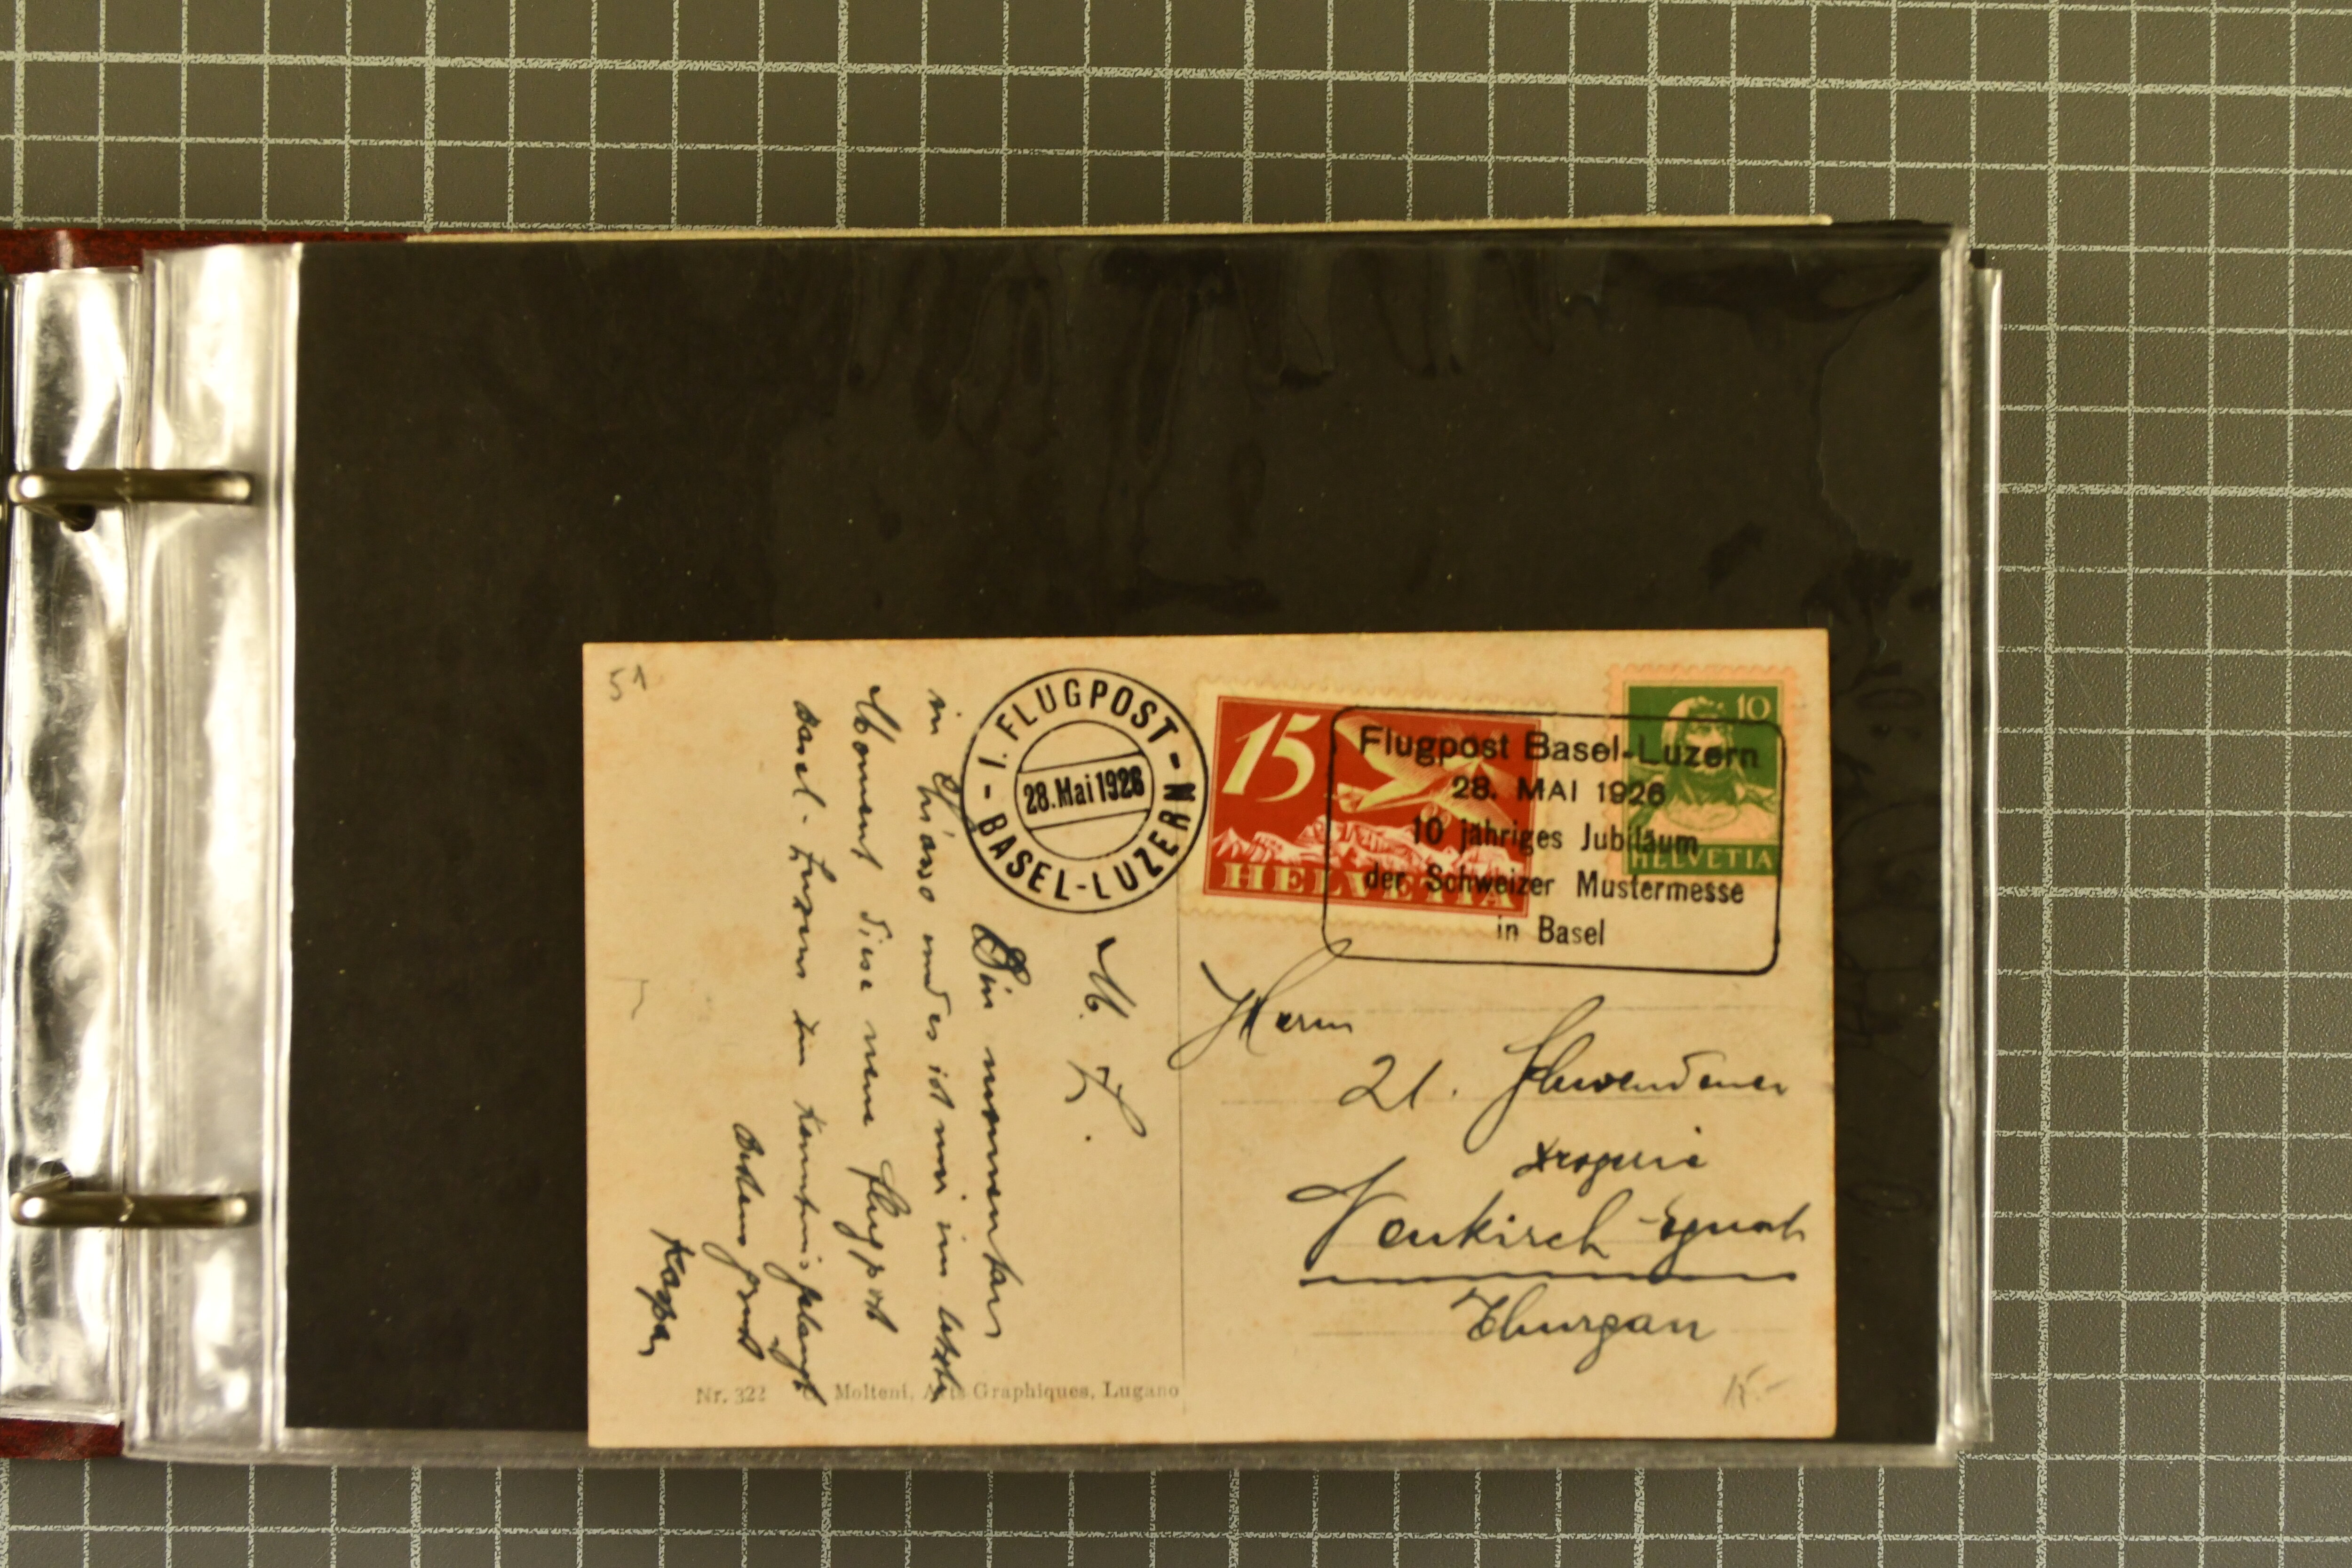 51
1. FLUGPOST - BASEL-LUZERN -
28. Mai 1926
15
HELVETIA
10
HELVETIA
Flugpost Basel-Luzern
28. MAI 1926
10 jähriges Jubiläum
der Schweizer Mustermesse
in Basel
M. L.
Bin momentan
in Chiasso und es ist mir im letzten
Moment diese neue Flugpost
Basel-Luzern zur Kenntnis gelangt
Bestens grüsst
Kaspar
Herrn
A. Schwendener
Drogerie
Neukirch-Egnach
Thurgau
Nr. 322 Molteni, Arts Graphiques, Lugano
15.-